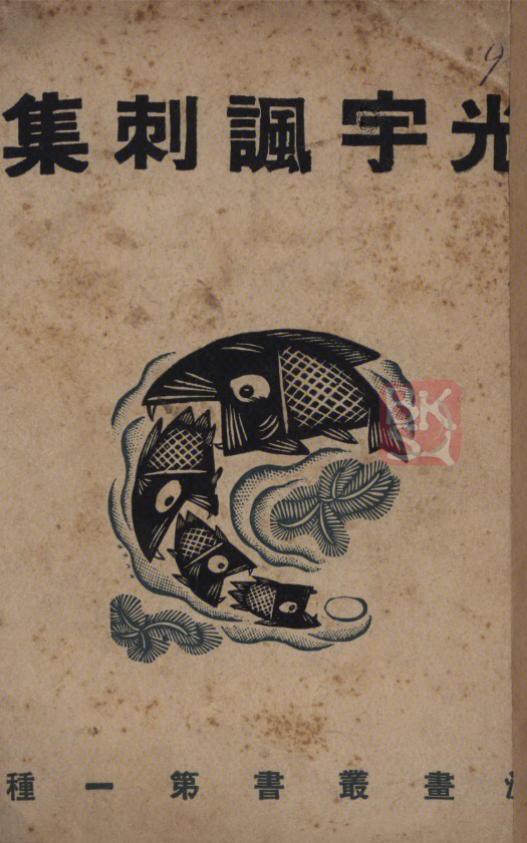 光宇諷刺集
畫叢書第一種
9
BK